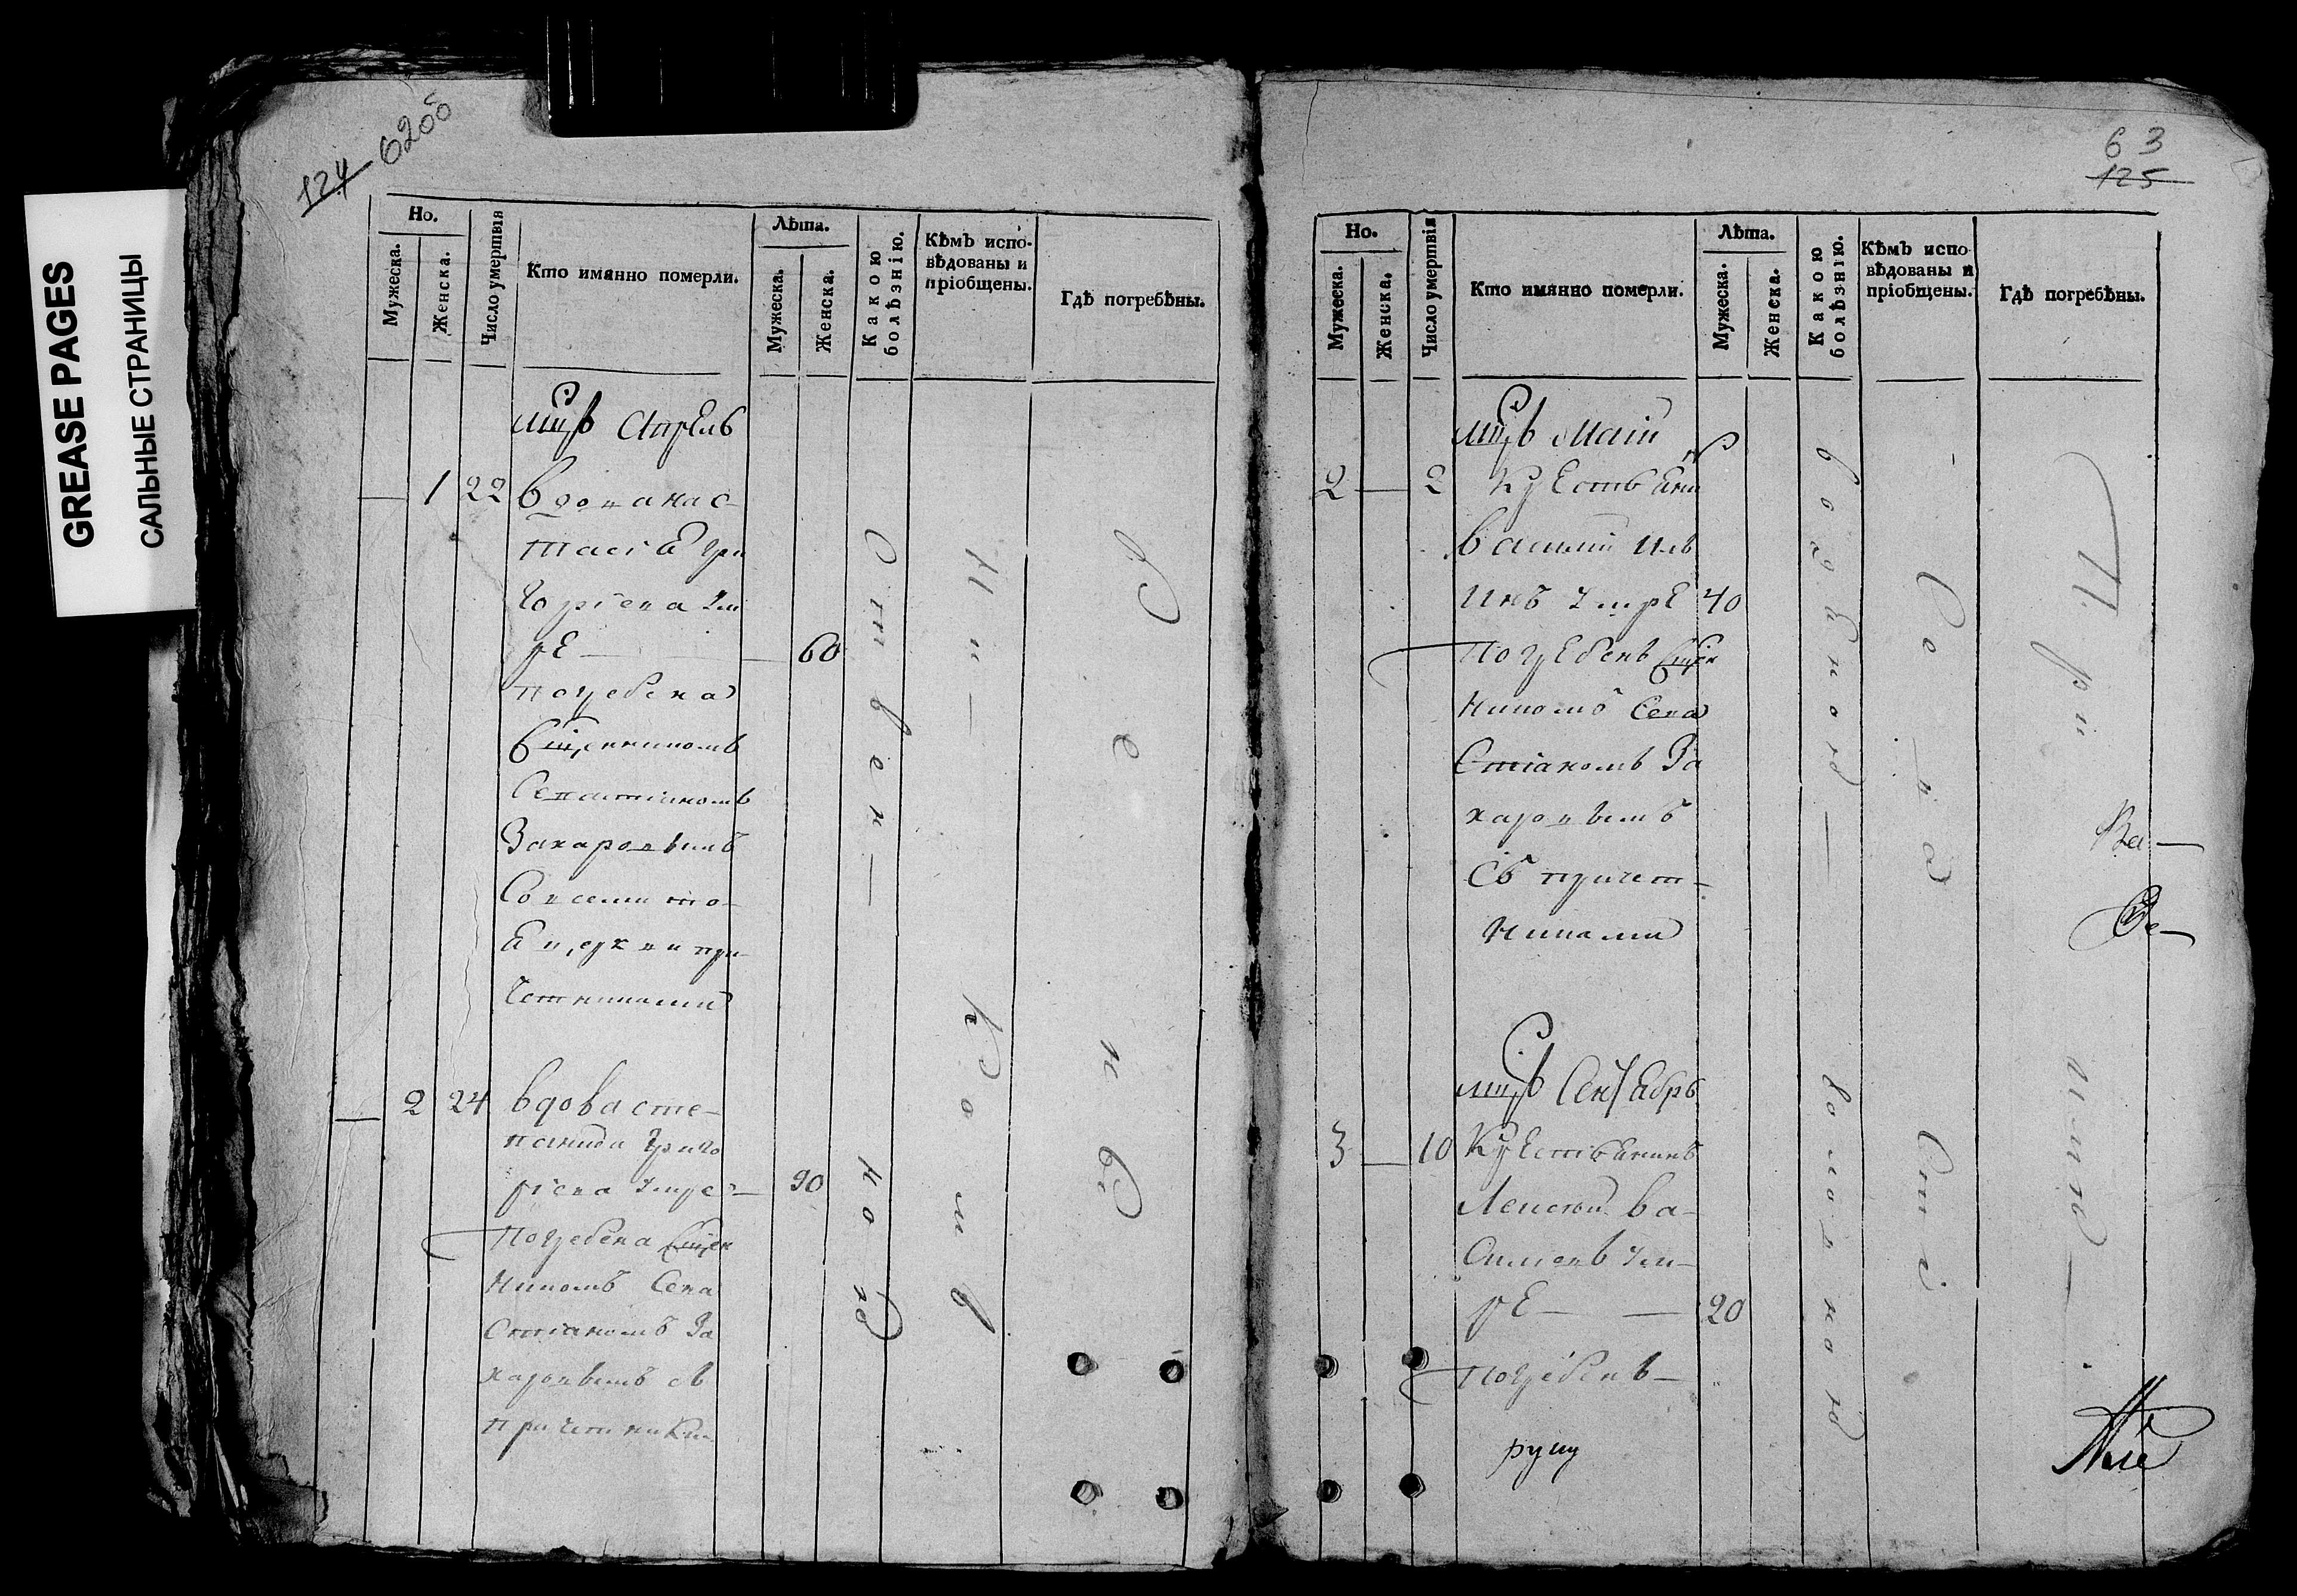 GREASE PAGES
САЛЬНЫЕ СТРАНИЦЫ
124 62об
Но.
Мужеска.
Женска.
Число умертвія
Кто имянно померли.
Лѣта.
Мужеска.
Женска.
Какою
болѣзнію.
Кѣмъ испо-
вѣдованы и
пріобщены.
Гдѣ погребѣны.
Апрель
1 22 Вдова нас-
тасіа гри
горіева Ум
ре — 60
погребена
Сщенникомъ
Севастіаномъ
Захаровымъ
Со всеми то-
я церкви при-
четниками
2 24 Вдова сте-
панида Григо
ріева Умре — 90
Погребена Сщен
никомъ Сева
стіаномъ За
харовымъ съ
причетники
63
125
Но.
Мужеска.
Женска.
Число умертвія
Кто имянно померли.
Лѣта.
Мужеска.
Женска.
Какою
болѣзнію.
Кѣмъ испо-
вѣдованы и
пріобщены.
Гдѣ погребѣны.
Маій
2 — 2 Крестьянин
Василий Иль
инъ Умре 40
Погребенъ Сщен
никомъ Сева
стіаномъ За
харовымъ
Съ причет-
никами
Сентябрь
3 — 10 Крестьянинъ
Ва-
Ум-
ре — 20
Погребенъ —
руку